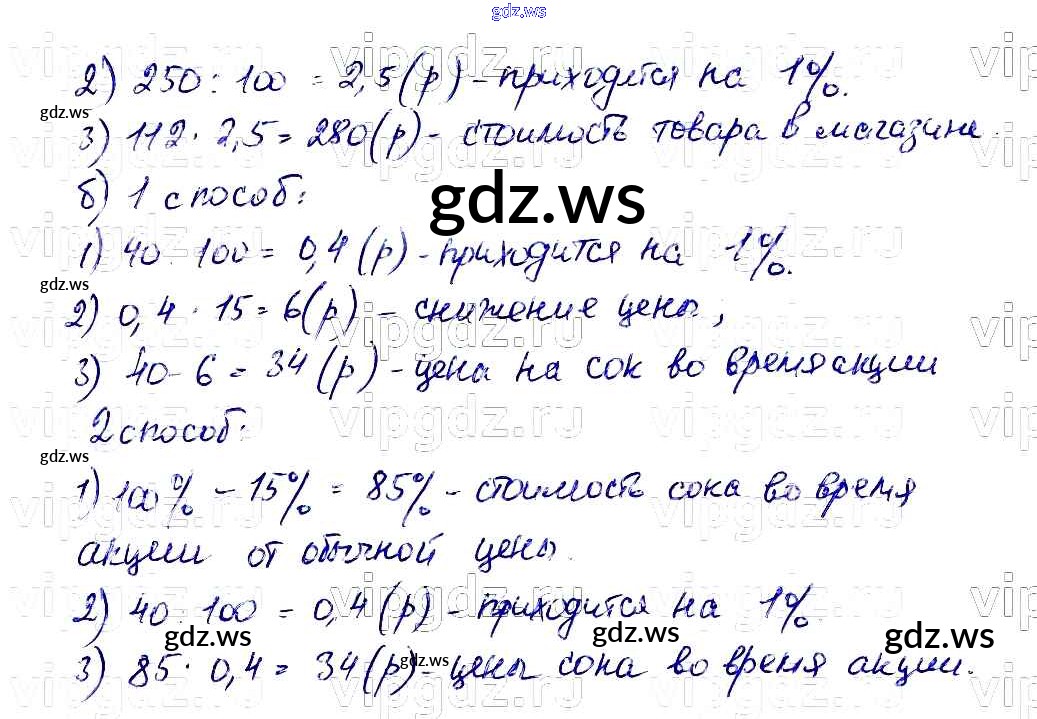 gdz.ws
2) 250 : 100 = 2,5 (р) - приходится на 1%.
gdz.ws
3) 112 · 2,5 = 280 (р) - стоимость товара в магазине.
б) 1 способ:
gdz.ws
1) 40 : 100 = 0,4 (р) - приходится на 1%.
gdz.ws
2) 0,4 · 15 = 6 (р) - снижение цены;
3) 40 - 6 = 34 (р) - цена на сок во время акции
2 способ:
gdz.ws
1) 100% - 15% = 85% - стоимость сока во время
акции от обычной цены.
2) 40 : 100 = 0,4 (р) - приходится на 1%.
gdz.ws gdz.ws gdz.ws
3) 85 · 0,4 = 34 (р) - цены сока во время акции.
gdz.ws
vipgdz.ru vipgdz.ru vipgdz.ru